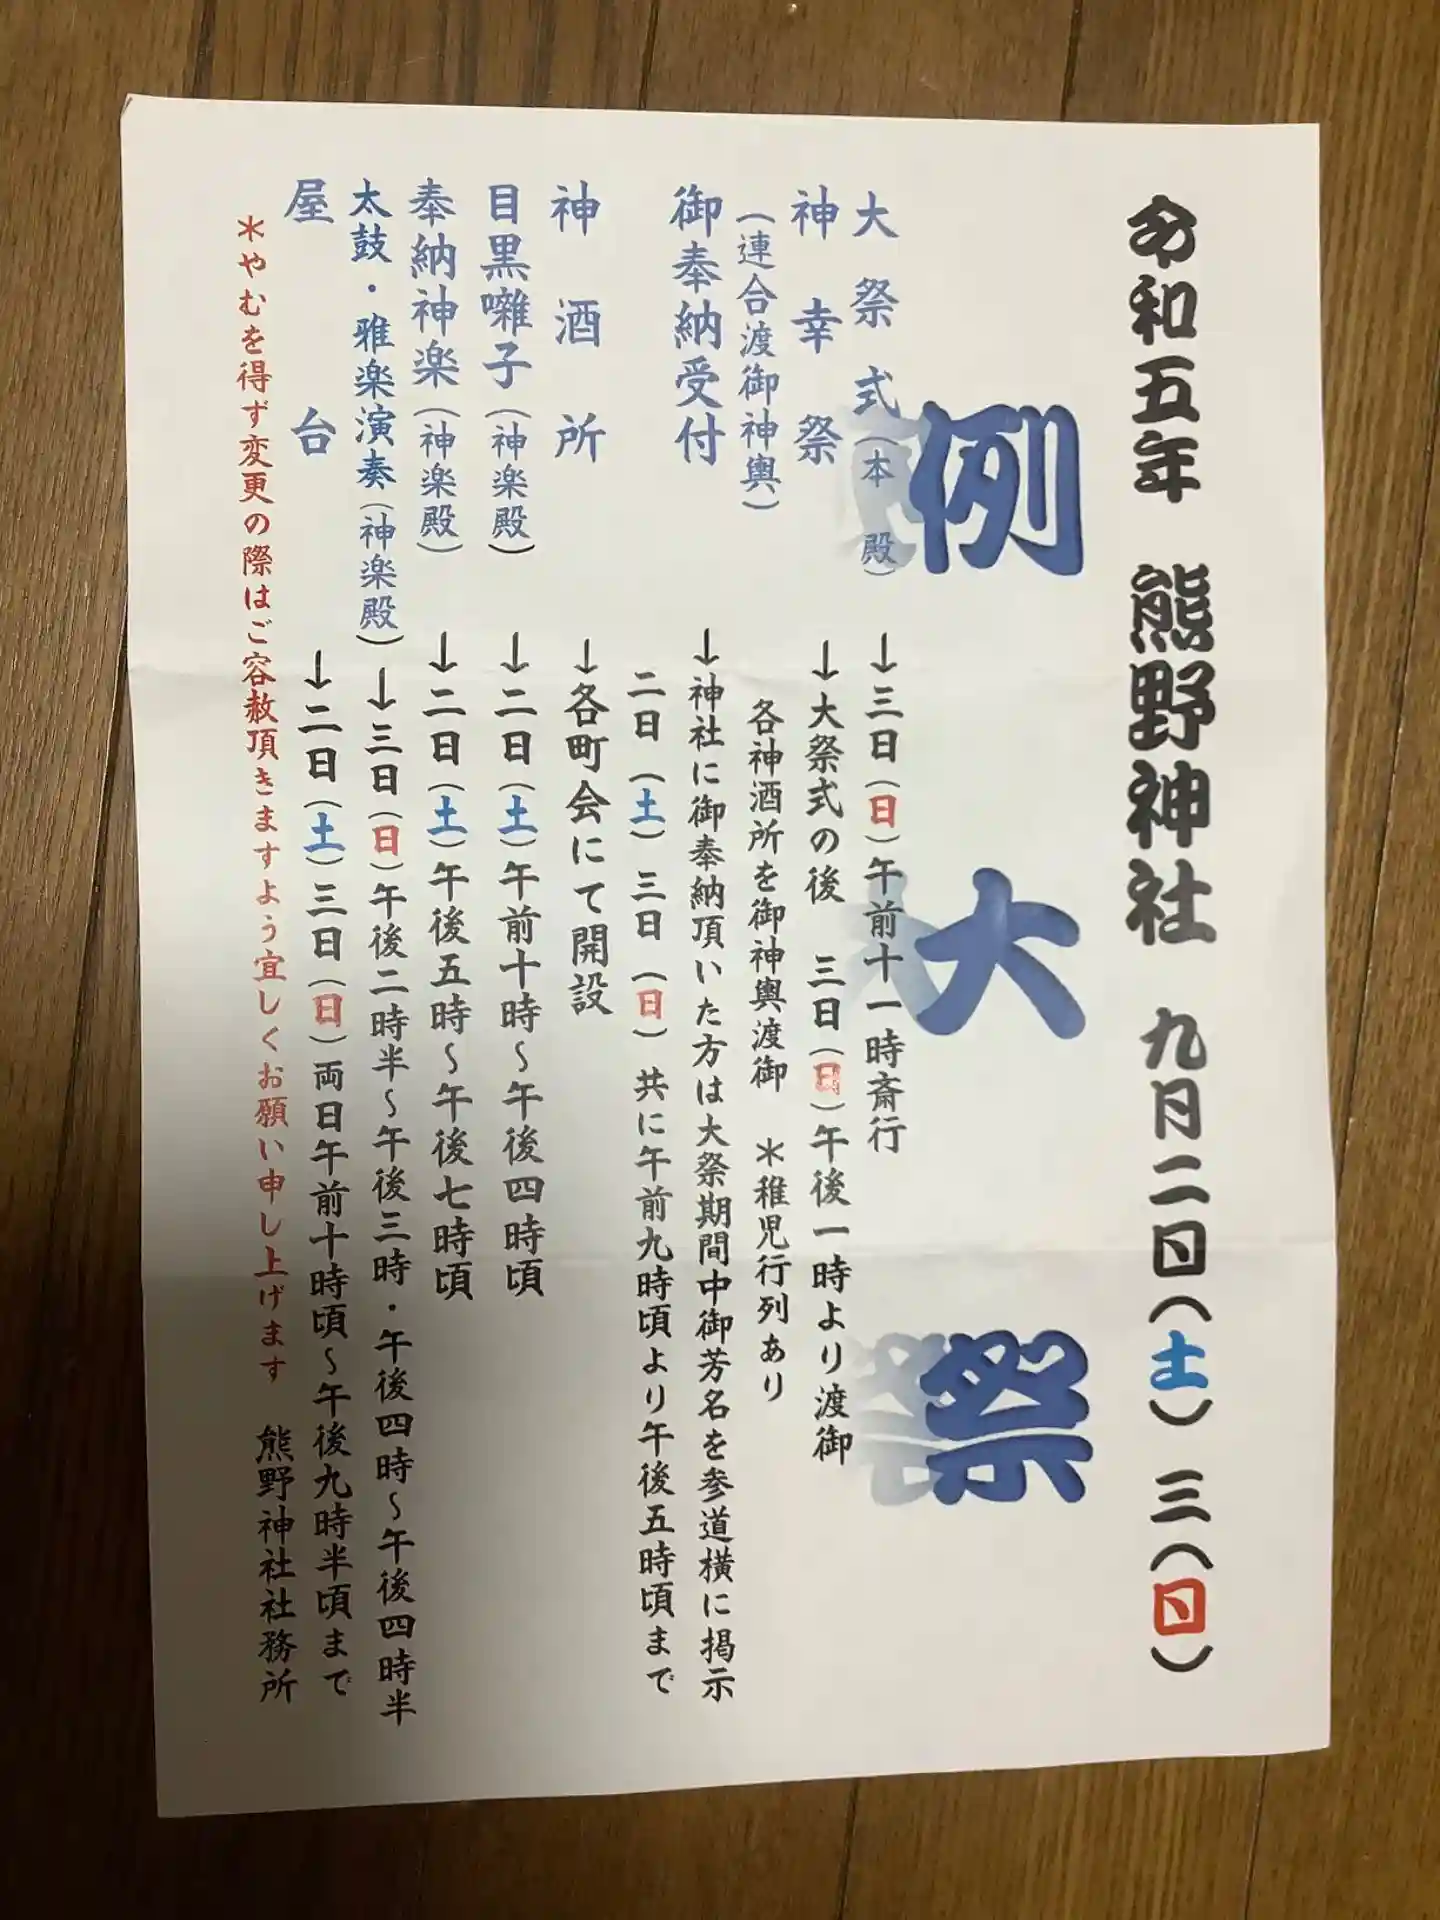 令和五年 熊野神社 九月二日(土) 三(日)
例大祭
大祭式(本殿)→三日(日)午前十一時斎行
神幸祭→大祭式の後 三日(日)午後一時より渡御
(連合渡御神輿) 各神酒所を御神輿渡御 *稚児行列あり
御奉納受付→神社に御奉納頂いた方は大祭期間中御芳名を参道横に掲示
二日(土)三日(日)共に午前九時頃より午後五時頃まで
神酒所→各町会にて開設
目黒囃子(神楽殿)→二日(土)午前十時~午後四時頃
奉納神楽(神楽殿)→二日(土)午後五時~午後七時頃
太鼓・雅楽演奏(神楽殿)→三日(日)午後二時半~午後三時・午後四時~午後四時半
屋台→二日(土)三日(日)両日午前十時頃~午後九時半頃まで
*やむを得ず変更の際はご容赦頂きますよう宜しくお願い申し上げます 熊野神社社務所